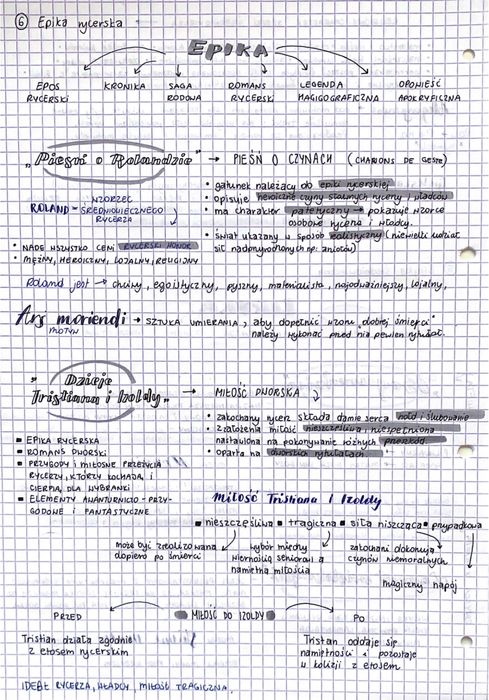 6 Epika rycerska
EPIKA
EPOS RYCERSKI
KRONIKA
SAGA RODOWA
ROMANS RYCERSKI
LEGENDA HAGIOGRAFICZNA
OPOWIEŚĆ APOKRYFICZNA
„Pieśń o Rolandzie" → PIEŚŃ O CZYNACH (CHANSONS DE GESTE)
• gatunek należący do epiki rycerskiej
• opisuje heroiczne czyny sławnych rycerzy i władców
• ma charakter patetyczny → pokazuje wzorce
osobowe rycerza i władcy.
• świat ukazany w sposób realistyczny (niewielki udział
sił nadprzyrodzonych np: aniołów)
ROLAND - WZORZEC
ŚREDNIOWIECZNEGO
RYCERZA
• NADE WSZYSTKO CENI RYCERSKI HONOR
• MĘŻNY, HEROICZNY, LOJALNY, RELIGIJNY
Roland jest → chciwy, egoistyczny, pyszny, materialista, najodważniejszy, lojalny,
Ars moriendi → SZTUKA UMIERANIA, aby dopełnić wzoru „dobrej śmierci"
MOTYW
należy wykonać przed nią pewien rytuał.
„Dzieje
Tristiana i Izoldy" → MIŁOŚĆ DWORSKA
• zakochany rycerz składa damie serca hołd i ślubowanie
• z założenia miłość nieszczęśliwa, niespełniona
nastawiona na pokonywanie różnych przeszkód.
• oparta na dworskich rytuałach
▪ EPIKA RYCERSKA
▪ ROMANS DWORSKI
▪ PRZYGODY I MIŁOSNE PRZEŻYCIA
RYCERZY, KTÓRZY KOCHAJĄ I
CIERPIĄ DLA WYBRANKI
▪ ELEMENTY AWANTURNICZO-PRZY-
GODOWE I FANTASTYCZNE
Miłość Tristiana i Izoldy
▪ nieszczęśliwa ▪ tragiczna ▪ siła niszcząca ▪ przypadkowa
może być zrealizowana
dopiero po śmierci
wybór między
wiernością seniorowi a
namiętną miłością
zakochani dokonują
czynów niemoralnych
magiczny napój
PRZED
MIŁOŚĆ DO IZOLDY
PO
Tristian działa zgodnie
z etosem rycerskim
Tristan oddaje się
namiętności i pozostaje
w kolizji z etosem
IDEAŁ RYCERZA, WŁADCY, MIŁOŚĆ TRAGICZNA.